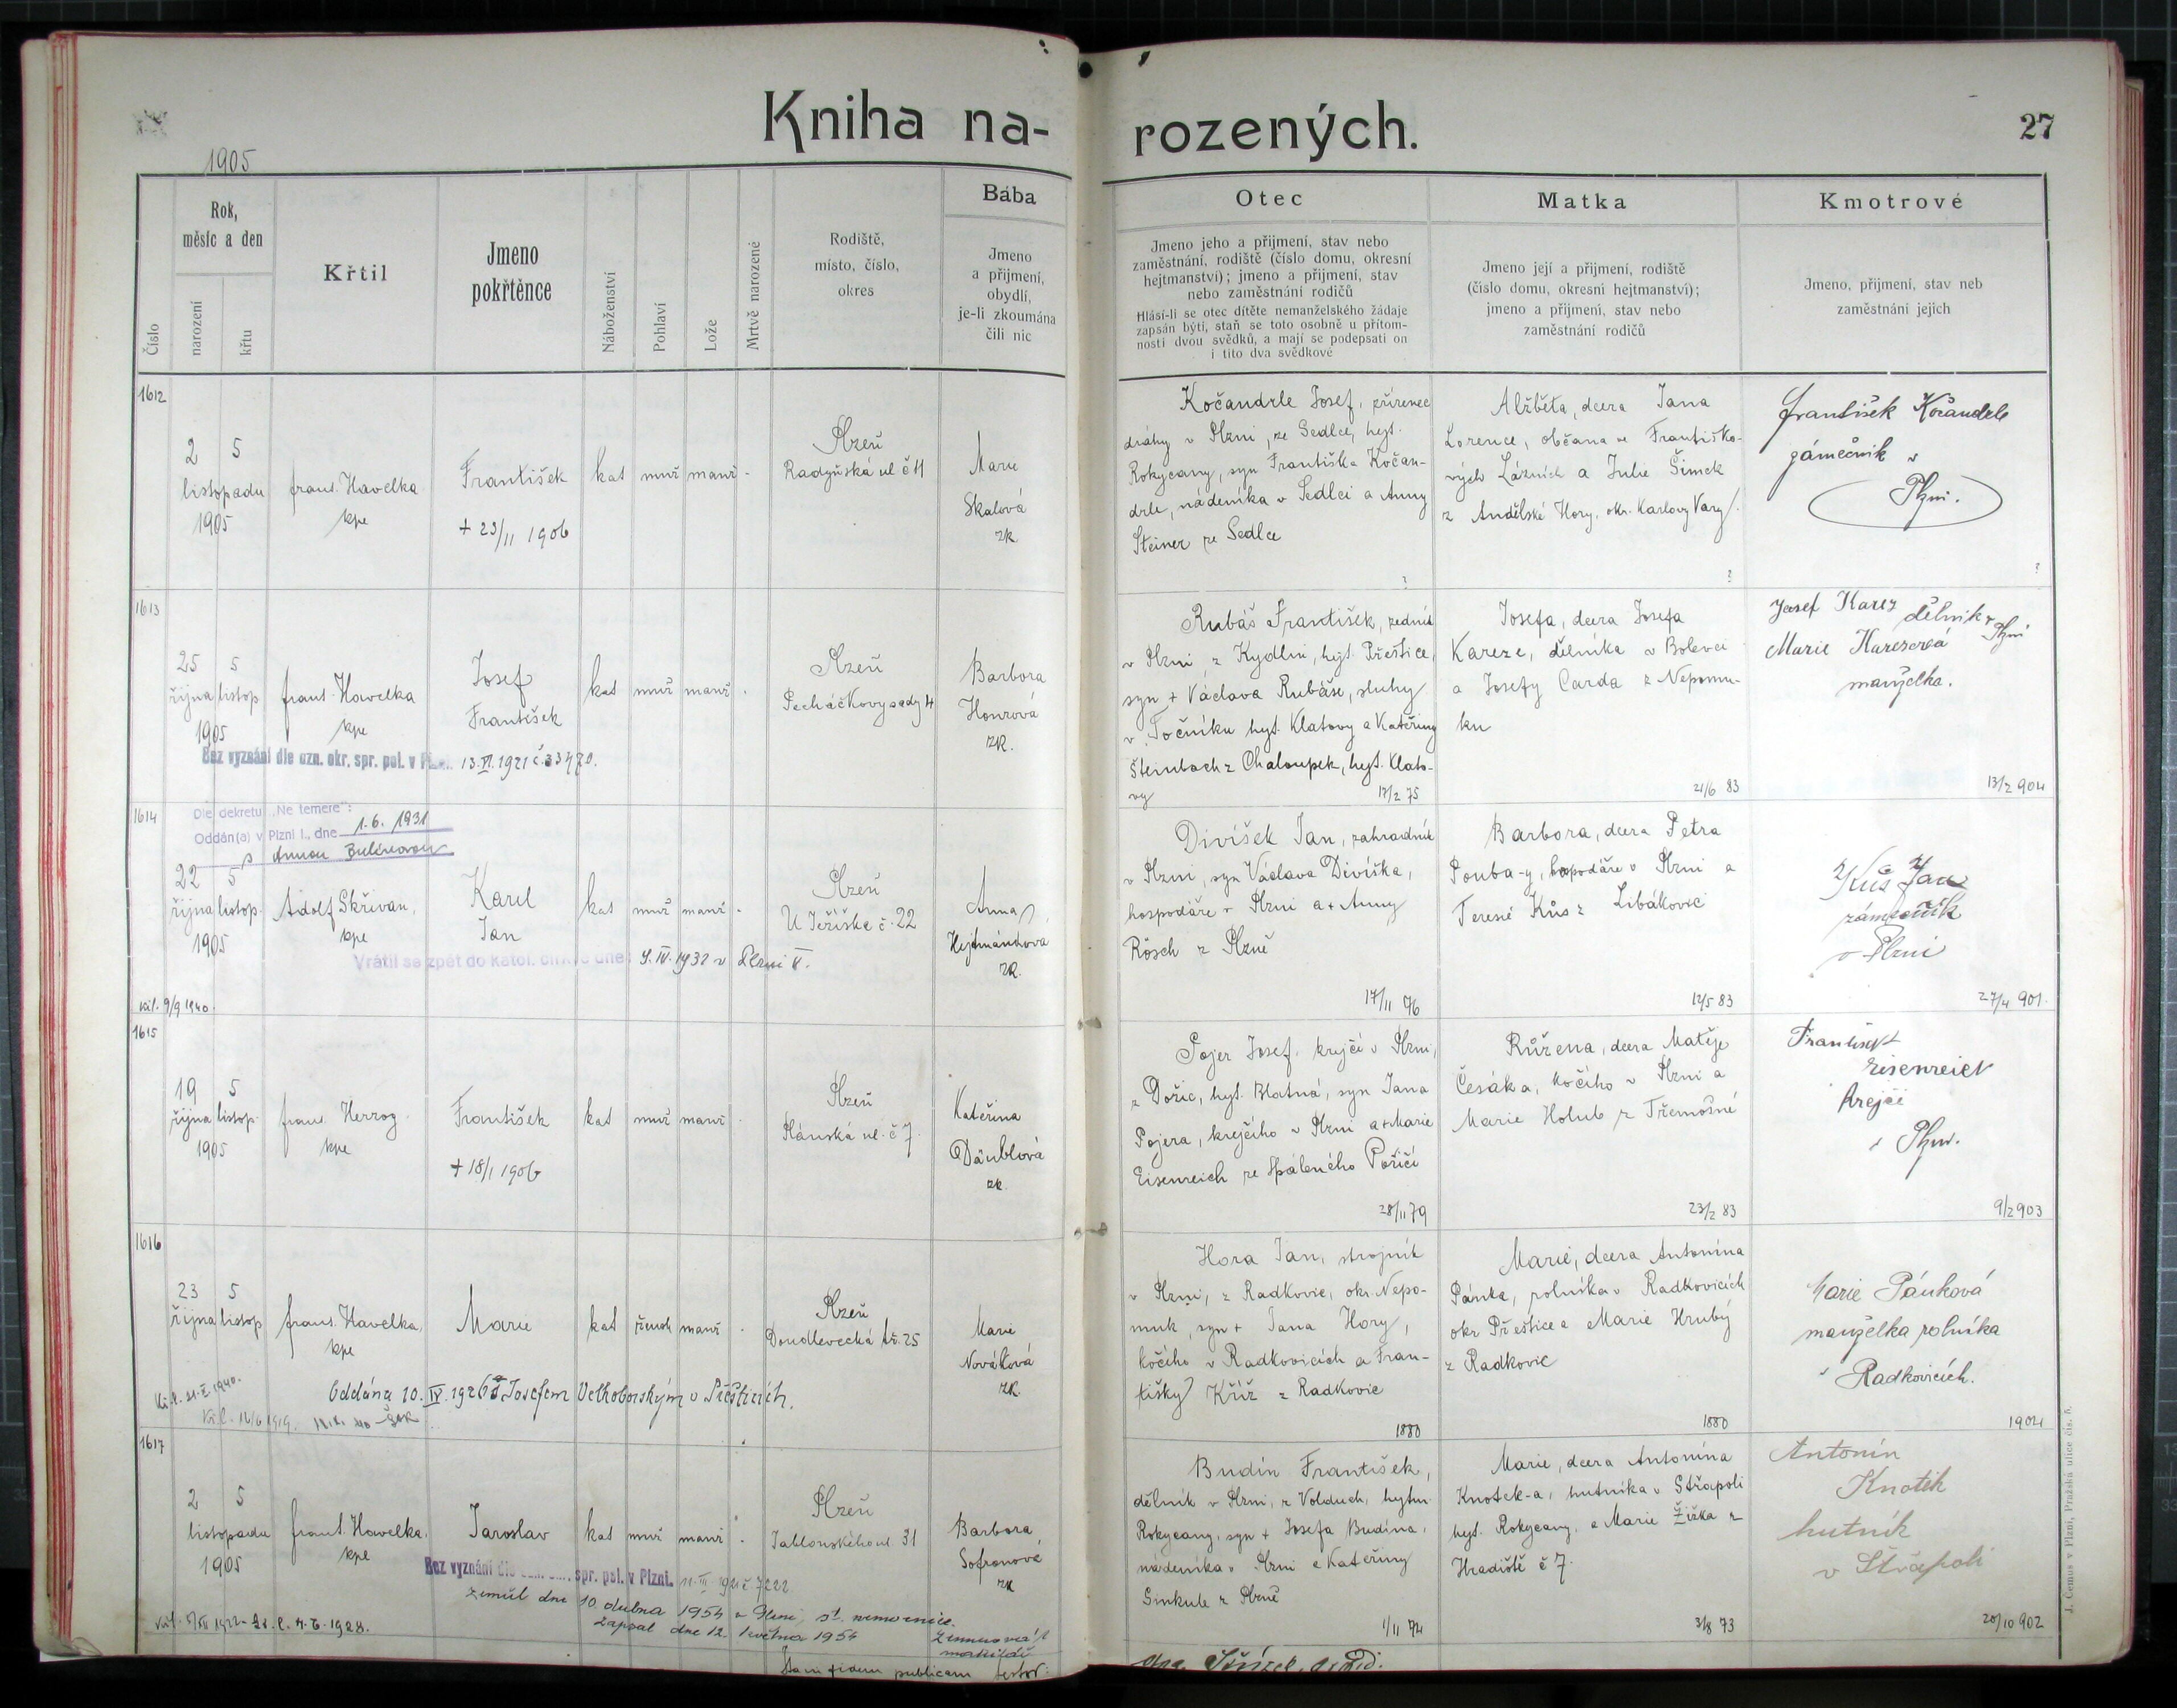 Kniha na-
rozených.
27
1905
Číslo
Rok,
měsíc a den
narození
křtu
Křtil
Jmeno
pokřtěnce
Náboženství
Pohlaví
Lože
Mrtvě narozené
Rodiště,
místo, číslo,
okres
Bába
Jmeno
a přijmení,
obydlí,
je-li zkoumána
čili nic
Otec
Jmeno jeho a přijmení, stav nebo
zaměstnání, rodiště (číslo domu, okresní
hejtmanství); jmeno a přijmení, stav
nebo zaměstnání rodičů
Hlásí-li se otec dítěte nemanželského žádaje
zapsán býti, staň se toto osobně u přítom-
nosti dvou svědků, a mají se podepsati on
i tito dva svědkové
Matka
Jmeno její a přijmení, rodiště
(číslo domu, okresní hejtmanství);
jmeno a přijmení, stav nebo
zaměstnání rodičů
Kmotrové
Jmeno, přijmení, stav neb
zaměstnání jejich
1612
2 5
listopadu
1905
frant. Havelka
kpe
František
+ 23/11 1906
kat muž manž -
Plzeň
Radyňská ul č 11
Marie
Skalová
zk.
Kočandrle Josef, zřízenec
dráhy v Plzni, ze Sedlce, hejt.
Rokycany, syn Františka Kočan-
drle, nádeníka v Sedlci a Anny
Steiner ze Sedlce
?
Alžběta, dcera Jana
Lorence, občana ve Františko-
vých Lázních a Julie Šimek
z Andělské Hory, okr. Karlovy Vary.
?
František Kočandrle
zámečník v
Plzni.
?
1613
25 5
října listop
1905
frant. Havelka
kpe
Josef
František
kat muž manž .
Plzeň
Pecháčkovy sady 4
Barbora
Honzová
zk.
Bez vyznání dle ozn. okr. spr. pol. v Plzni. 13.VI.1921 č 33470.
Rubáš František, zedník
v Plzni z Kydlin, hejt. Přeštice,
syn + Václava Rubáše, sluhy
v Točníku hejt. Klatovy a Kateřiny
Šteinbach z Chaloupek, hejt. Klato-
vy
17/2 75
Josefa, dcera Josefa
Kareze, dělníka v Bolevci
a Josefy Carda z Nepomu-
ku
21/6 83
Josef Karez dělník v Plzni
Marie Karezová
manželka.
13/2 904
1614
Dle dekretu „Ne temere“:
Oddán(a) v Plzni I., dne 1.6. 1931
s Annou
22 5
října listop.
1905
Adolf Skřivan,
kpe
Karel
Jan
kat muž manž .
Plzeň
U Ježíška č. 22
Anna
Hejtmánková
zk.
Vrátil se zpět do katol. církve dne: 4. IV. 1932 v Plzni V.
kř.l. 9/9 1940.
Divíšek Jan, zahradník
v Plzni, syn Václava Divíška,
hospodáře v Plzni a + Anny
Rösch z Plzně
17/11 76
Barbora, dcera Petra
Pouba-y, hospodáře v Plzni a
Terezie Kůs z Libákovic
12/5 83
Kůs Jan
zámečník
v Plzni
27/4 901.
1615
19 5
října listop.
1905
frant. Herzog
kpe
František
+ 18/1 1906
kat muž manž .
Plzeň
Plánská ul. č 7.
Kateřina
Däublová
zk.
Pojer Josef, krejčí v Plzni,
z Pořic, hejt. Blatná, syn Jana
Pojera, krejčího v Plzni a + Marie
Eisenreich ze Spáleného Poříčí
28/11 79
Růžena, dcera Matěje
Česáka, kočího v Plzni a
Marie Holub z Třemošné
23/2 83
František
Eisenreich
krejčí
v Plzni.
9/2 903
1616
23 5
října listop
1905
frant. Havelka,
kpe
Marie
kat žensk manž .
Plzeň
Doudlevecká tř. 25
Marie
Nováková
zk.
Oddána 10. IV. 1926 s Josefem Velkoborským v Přešticích.
Hora Jan, strojník
v Plzni, z Radkovic, okr. Nepo-
muk, syn + Jana Hory,
kočího v Radkovicích a Fran-
tišky Kříž z Radkovic
1880
Marie, dcera Antonína
Pánka, rolníka v Radkovicích
okr Přeštice a Marie Hrubý
z Radkovic
1880
Marie Pánková
manželka rolníka
v Radkovicích.
1904
1617
2 5
listopadu
1905
frant. Havelka.
kpe
Jaroslav
kat muž manž .
Plzeň
Jablonského ul. 31
Barbora
Sofronová
zk
Bez vyznání dle ozn. okr. spr. pol. v Plzni. 11. III. 1921 č 7222.
Zemřel dne 10 dubna 1954 v Plzni st. nemocnice.
Zapsal dne 12. května 1954
matrikář
Budín František,
dělník v Plzni, z Volduch, hejtm.
Rokycany, syn + Josefa Budína,
nádeníka v Plzni a Kateřiny
Sinkule z Plzně
1/11 74
Marie, dcera Antonína
Knotek-a, hutníka v Střapoli
hejt. Rokycany, a Marie Žižka z
Hradiště č 7.
3/8 73
Antonín
Knotek
hutník
v Střapoli
20/10 902
fidem publicam
J. Čemus v Plzni, Pražská ulice čís. 8.